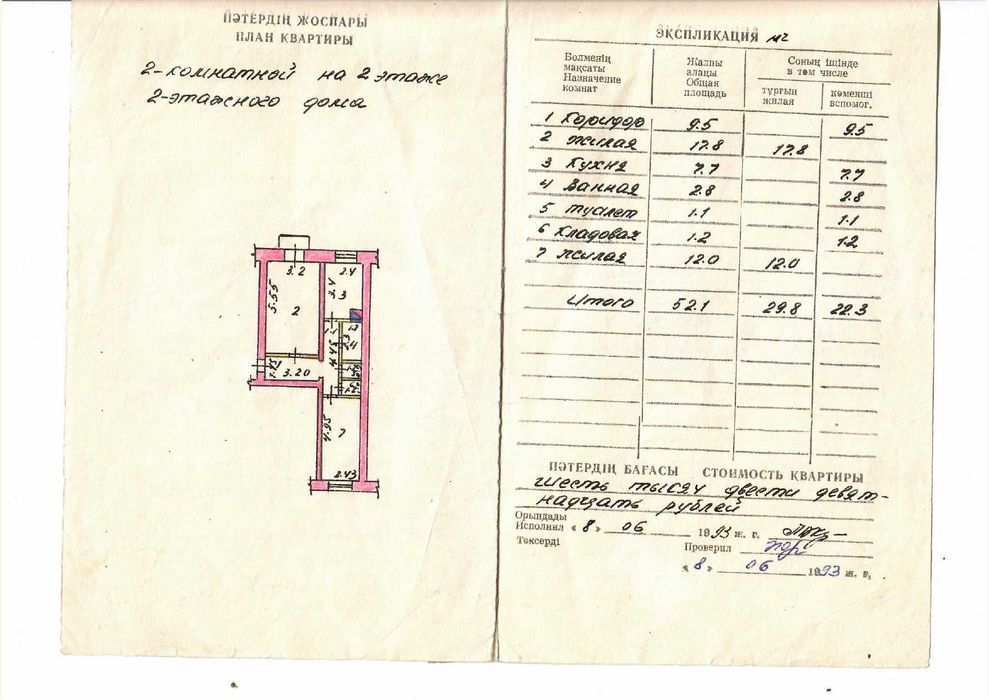 ПӘТЕРДІҢ ЖОСПАРЫ
ПЛАН КВАРТИРЫ
2-комнатной на 2 этаже
2-этажного дома
3.2
2.4
5.55
3.4
3
2
4.45
3.20
4.95
7
2.43
ЭКСПЛИКАЦИЯ м2
Бөлменің мақсаты Назначение комнат
Жалпы алаңы Общая площадь
Соның ішінде в том числе
тұрғын жилая
көмекші вспомог.
1 Коридор 9.5 9.5
2 Жилая 17.8 17.8
3 Кухня 7.7 7.7
4 Ванная 2.8 2.8
5 Туалет 1.1 1.1
6 Кладовая 1.2 1.2
7 Жилая 12.0 12.0
Итого 52.1 29.8 22.3
ПӘТЕРДІҢ БАҒАСЫ СТОИМОСТЬ КВАРТИРЫ
Шесть тысяч двести девят-
надцать рублей
Орындады
Исполнил « 8 » 06 1993 ж. г.
Тексерді
Проверил
« 8 » 06 1993 ж. г.